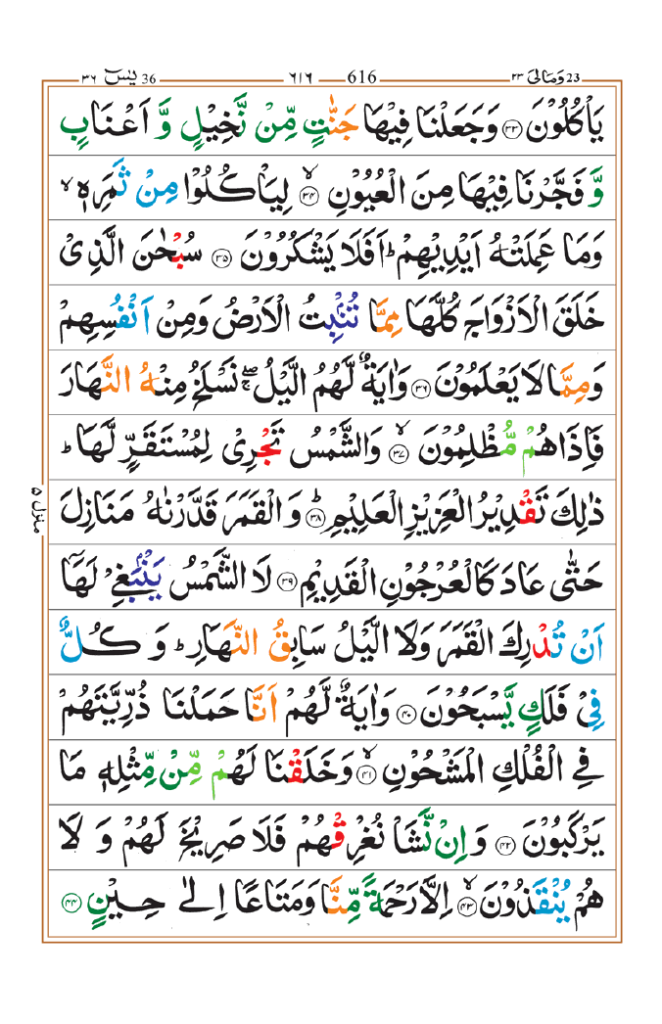 36 يٰسٓ ٣٦ ٦١٦ 616 23 وَمَالِىَ ٢٣
يَاْكُلُوْنَ ﴿٣٣﴾ وَجَعَلْنَا فِيْهَا جَنّٰتٍ مِّنْ نَّخِيْلٍ وَّ اَعْنَابٍ
وَّ فَجَّرْنَا فِيْهَا مِنَ الْعُيُوْنِ ۙ﴿٣٤﴾ لِيَاْكُلُوْا مِنْ ثَمَرِهٖ ۙ
وَمَا عَمِلَتْهُ اَيْدِيْهِمْ ؕ اَفَلَا يَشْكُرُوْنَ ﴿٣٥﴾ سُبْحٰنَ الَّذِىْ
خَلَقَ الْاَزْوَاجَ كُلَّهَا مِمَّا تُنْۢبِتُ الْاَرْضُ وَمِنْ اَنْفُسِهِمْ
وَمِمَّا لَا يَعْلَمُوْنَ ﴿٣٦﴾ وَاٰيَةٌ لَّهُمُ الَّيْلُ ۖۚ نَسْلَخُ مِنْهُ النَّهَارَ
فَاِذَا هُمْ مُّظْلِمُوْنَ ۙ﴿٣٧﴾ وَالشَّمْسُ تَجْرِىْ لِمُسْتَقَرٍّ لَّهَا ؕ
ذٰلِكَ تَقْدِيْرُ الْعَزِيْزِ الْعَلِيْمِ ؕ﴿٣٨﴾ وَالْقَمَرَ قَدَّرْنٰهُ مَنَازِلَ
حَتّٰى عَادَ كَالْعُرْجُوْنِ الْقَدِيْمِ ﴿٣٩﴾ لَا الشَّمْسُ يَنْۢبَغِىْ لَهَاۤ
اَنْ تُدْرِكَ الْقَمَرَ وَلَا الَّيْلُ سَابِقُ النَّهَارِ ؕ وَ كُلٌّ
فِىْ فَلَكٍ يَّسْبَحُوْنَ ﴿٤٠﴾ وَاٰيَةٌ لَّهُمْ اَنَّا حَمَلْنَا ذُرِّيَّتَهُمْ
فِى الْفُلْكِ الْمَشْحُوْنِ ۙ﴿٤١﴾ وَخَلَقْنَا لَهُمْ مِّنْ مِّثْلِهٖ مَا
يَرْكَبُوْنَ ﴿٤٢﴾ وَاِنْ نَّشَاْ نُغْرِقْهُمْ فَلَا صَرِيْخَ لَهُمْ وَ لَا
هُمْ يُنْقَذُوْنَ ۙ﴿٤٣﴾ اِلَّا رَحْمَةً مِّنَّا وَمَتَاعًا اِلٰى حِيْنٍ ﴿٤٤﴾
منزل ٥